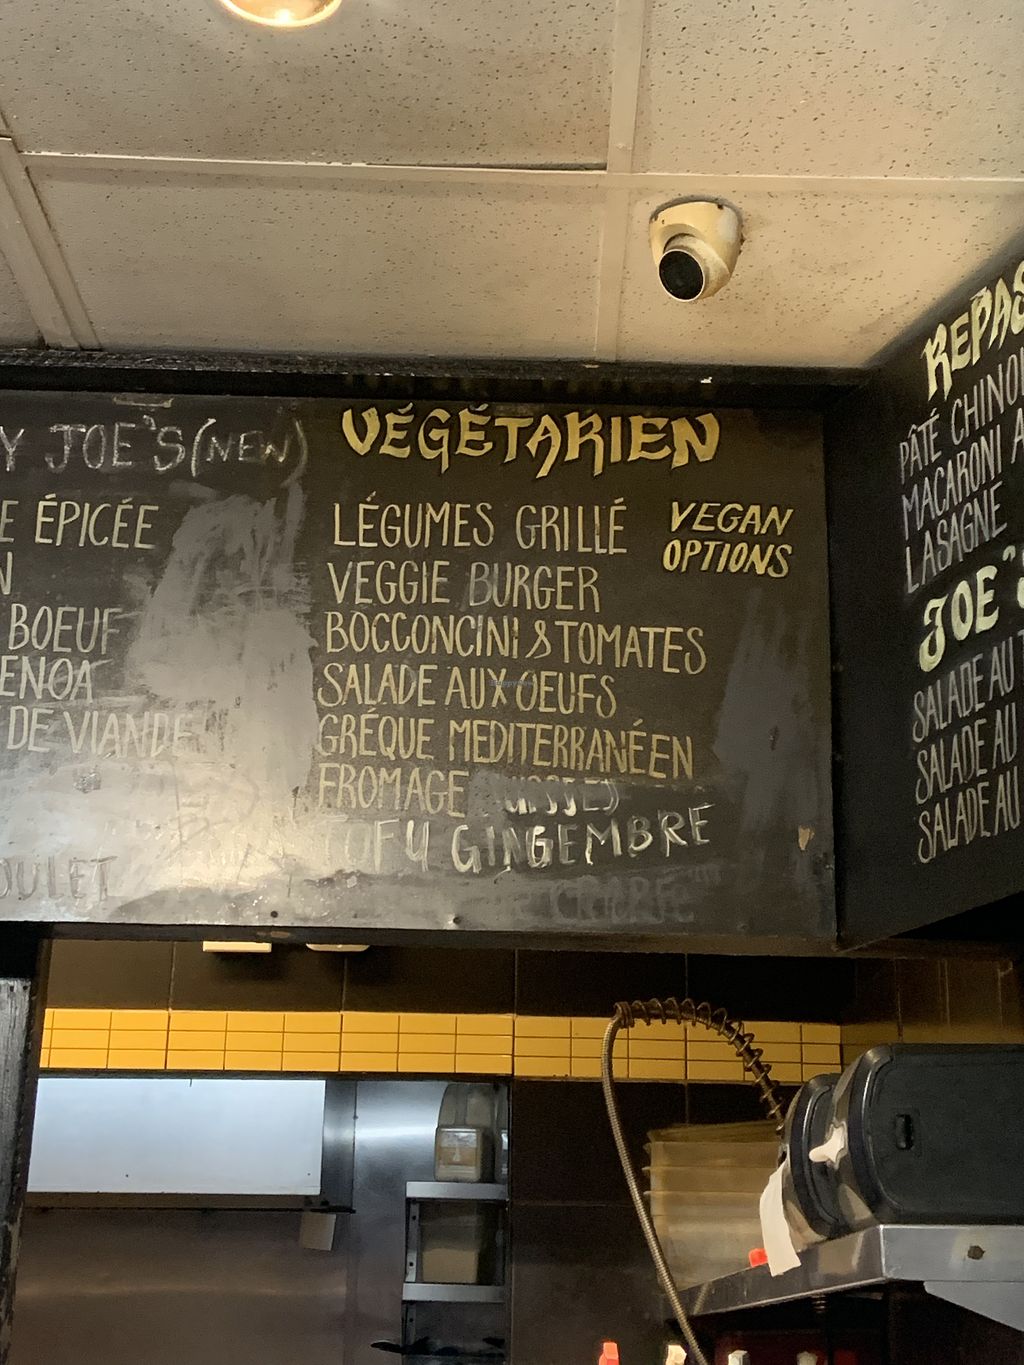 Y JOE'S (NEW)
E ÉPICÉE
N
BOEUF
ENOA
DE VIANDE
OULET
VÉGÉTARIEN
LÉGUMES GRILLÉ
VEGGIE BURGER
BOCCONCINI & TOMATES
SALADE AUX OEUFS
GRÉQUE MEDITERRANÉEN
FROMAGE
TOFU GINGEMBRE
VEGAN
OPTIONS
REPAS
PÂTÉ CHINOI
MACARONI A
LASAGNE
JOE'S
SALADE AU
SALADE AU
SALADE AU